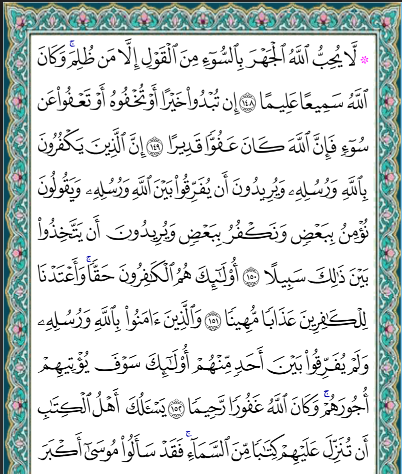 ۞ لَّا يُحِبُّ ٱللَّهُ ٱلْجَهْرَ بِٱلسُّوٓءِ مِنَ ٱلْقَوْلِ إِلَّا مَن ظُلِمَ ۚ وَكَانَ
ٱللَّهُ سَمِيعًا عَلِيمًا ١٤٨ إِن تُبْدُوا۟ خَيْرًا أَوْ تُخْفُوهُ أَوْ تَعْفُوا۟ عَن
سُوٓءٍ فَإِنَّ ٱللَّهَ كَانَ عَفُوًّا قَدِيرًا ١٤٩ إِنَّ ٱلَّذِينَ يَكْفُرُونَ
بِٱللَّهِ وَرُسُلِهِۦ وَيُرِيدُونَ أَن يُفَرِّقُوا۟ بَيْنَ ٱللَّهِ وَرُسُلِهِۦ وَيَقُولُونَ
نُؤْمِنُ بِبَعْضٍ وَنَكْفُرُ بِبَعْضٍ وَيُرِيدُونَ أَن يَتَّخِذُوا۟
بَيْنَ ذَٰلِكَ سَبِيلًا ١٥٠ أُو۟لَـٰٓئِكَ هُمُ ٱلْكَـٰفِرُونَ حَقًّا ۚ وَأَعْتَدْنَا
لِلْكَـٰفِرِينَ عَذَابًا مُّهِينًا ١٥١ وَٱلَّذِينَ ءَامَنُوا۟ بِٱللَّهِ وَرُسُلِهِۦ
وَلَمْ يُفَرِّقُوا۟ بَيْنَ أَحَدٍ مِّنْهُمْ أُو۟لَـٰٓئِكَ سَوْفَ يُؤْتِيهِمْ
أُجُورَهُمْ ۗ وَكَانَ ٱللَّهُ غَفُورًا رَّحِيمًا ١٥٢ يَسْـَٔلُكَ أَهْلُ ٱلْكِتَـٰبِ
أَن تُنَزِّلَ عَلَيْهِمْ كِتَـٰبًا مِّنَ ٱلسَّمَآءِ ۚ فَقَدْ سَأَلُوا۟ مُوسَىٰٓ أَكْبَرَ